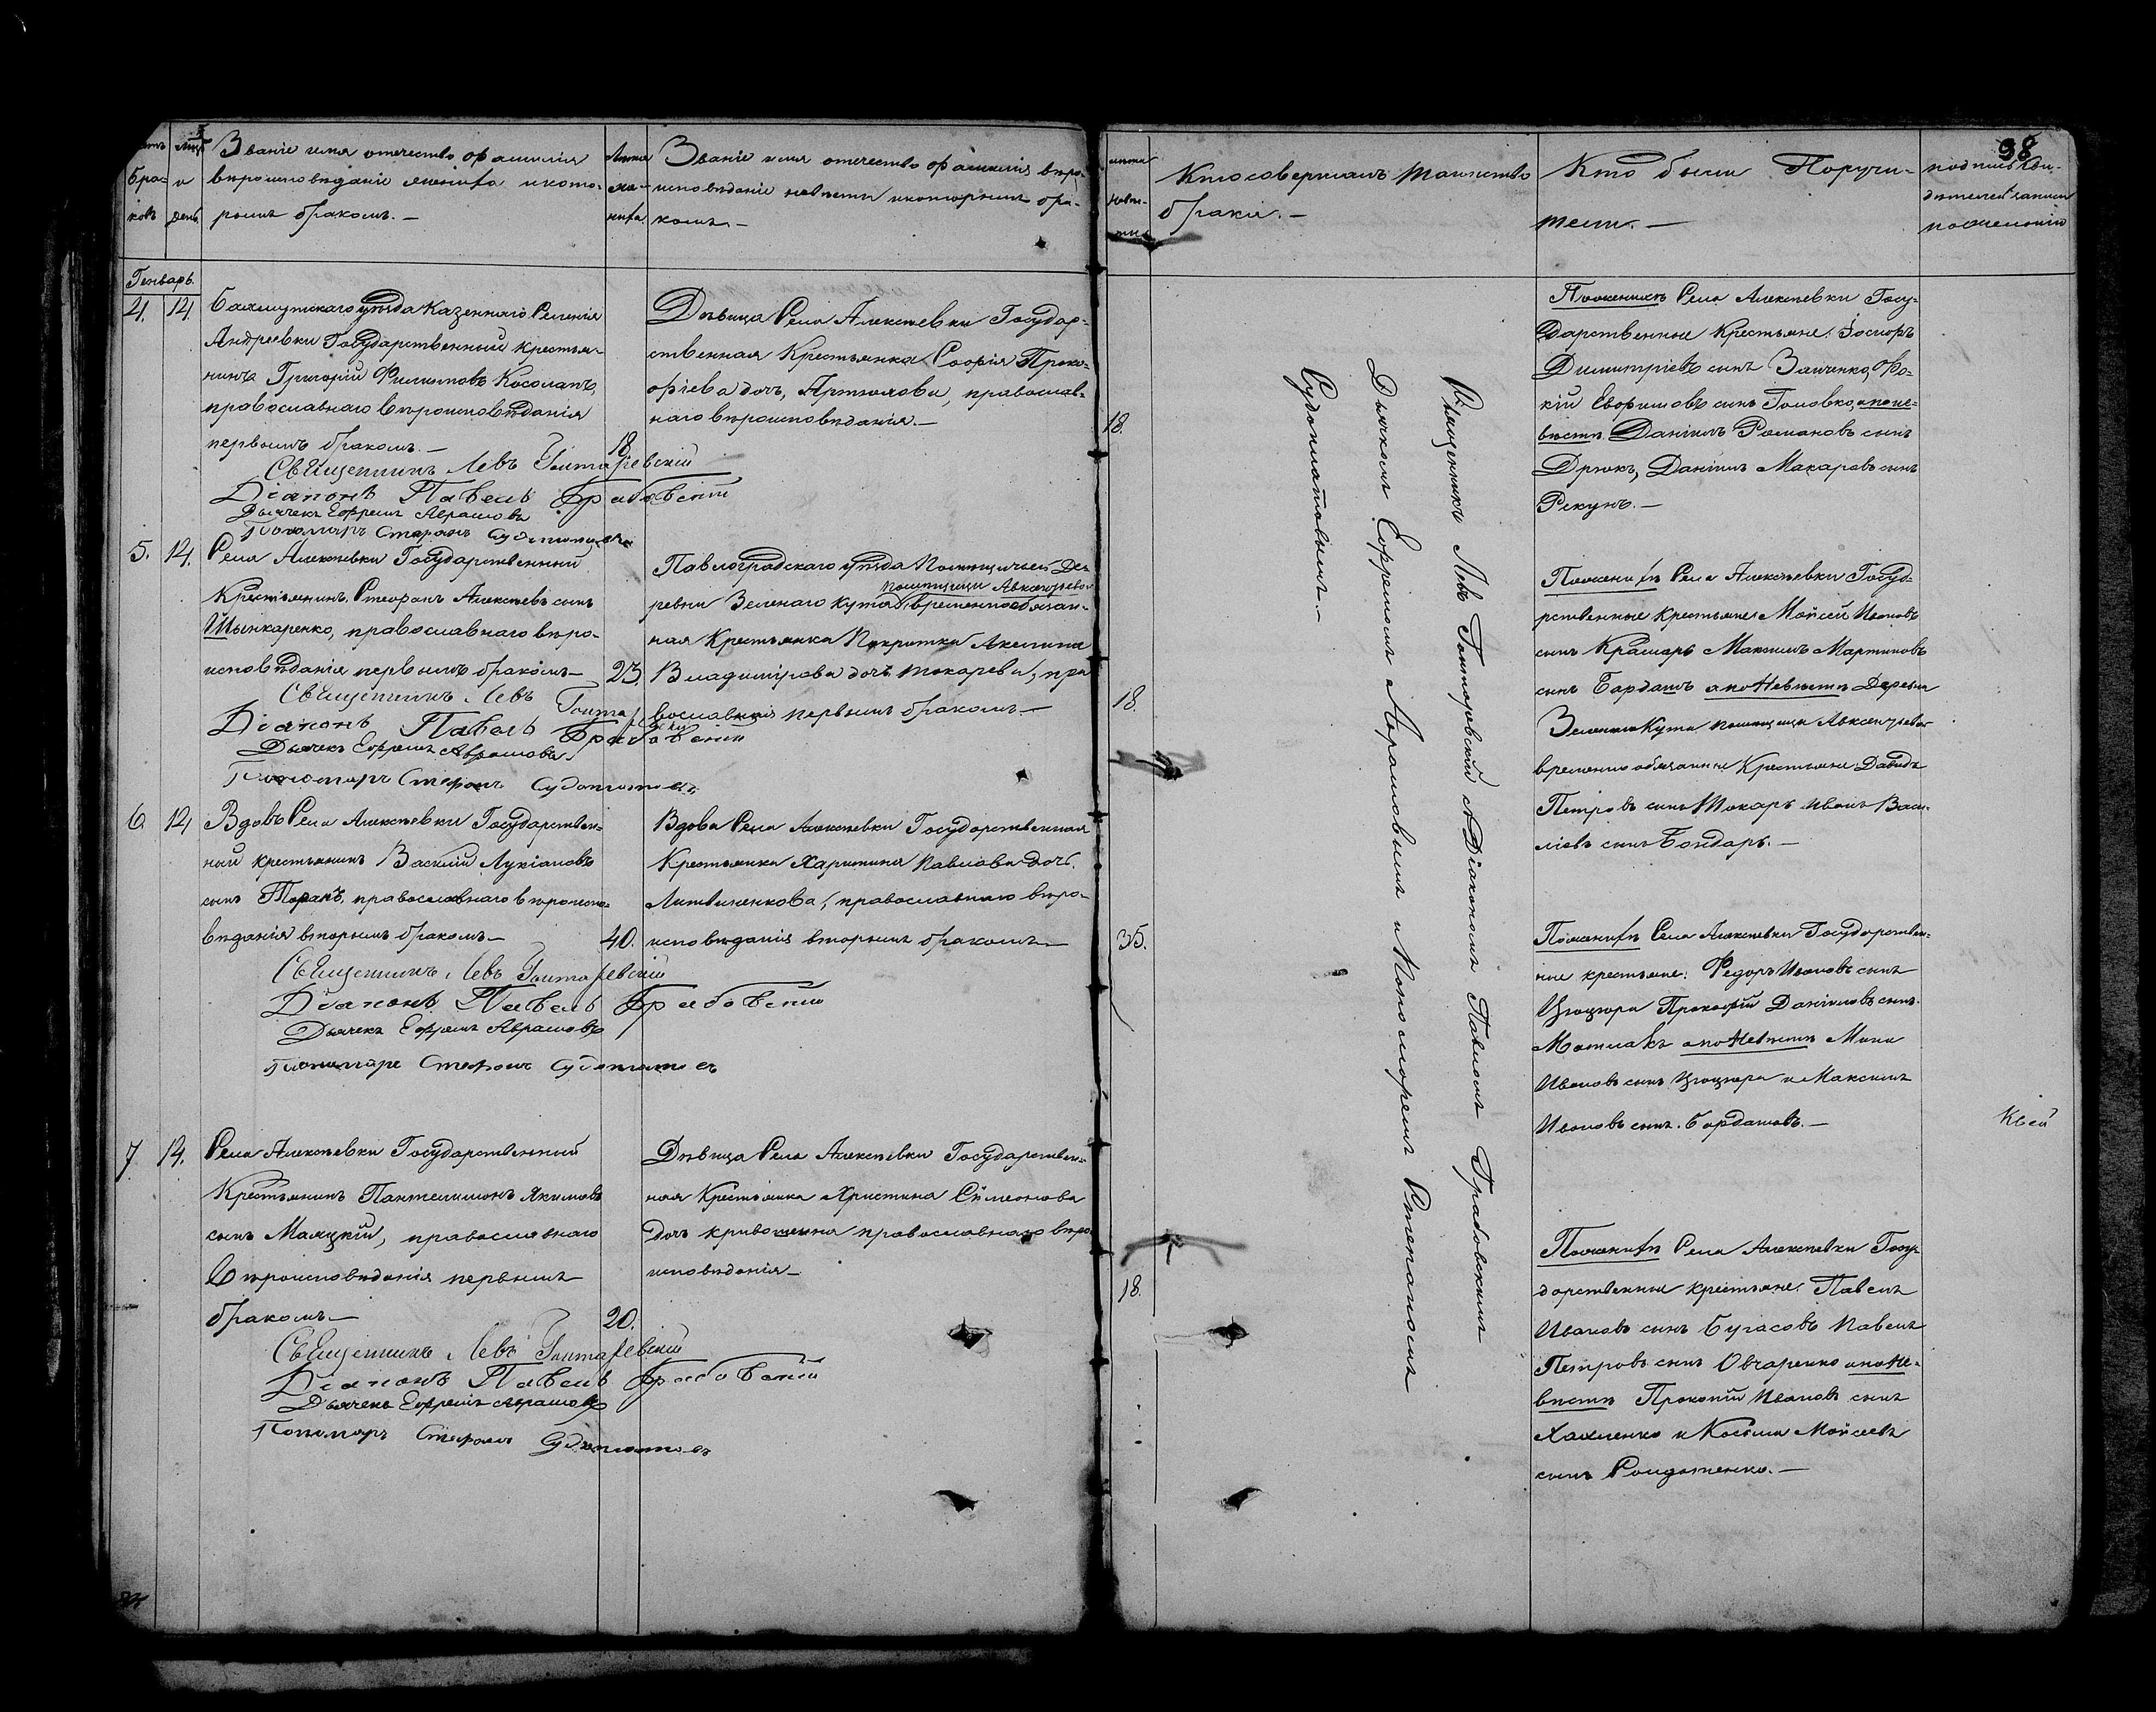 98
Бра-
ковъ
и
день
Званіе имя отечество фамилія
вѣроисповѣданіе жениха и кото-
рымъ бракомъ. —
Лѣта
же-
ниха
Званіе имя отечество фамилія вѣро-
исповѣданіе невѣсты и которымъ бра-
комъ. —
лѣта
невѣ-
сты
Кто совершалъ таинство
брака. —
Кто были Поручи-
тели. —
подпись сви-
дѣтелей записи
по желанію
Генварь.
4. 14.
Бахмутскаго уѣзда Казеннаго Селенія
Андреевки Государственный крестья-
нинъ Григорій Филиповъ Косолапъ,
православнаго вѣроисповѣданія
первымъ бракомъ. —
18
Священникъ Левъ
Діаконъ Павелъ Грабовскій
Дьячекъ Ефремъ Аврамовъ
Пономарь Стефанъ
Дѣвица Села Алексѣевки Государ-
ственная Крестьянка Софія Проко-
фіева дочь, православ-
наго вѣроисповѣданія. —
18.
По женихѣ Села Алексѣевки Госу-
дарственные Крестьяне:
Димитріевъ сынъ Заиченко, Фо-
кій Евфимовъ сынъ Головко, а по не-
вѣстѣ Даніилъ Романовъ сынъ
Дрюкъ, Даніилъ Макаровъ сынъ
Рекунъ. —
5. 14.
Села Алексѣевки Государственный
Крестьянинъ Стефанъ Алексѣевъ сынъ
Шынкаренко, православнаго вѣро-
исповѣданія первымъ бракомъ —
23.
Священникъ Левъ
Діаконъ Павелъ Грабовскій
Дьячекъ Ефремъ Аврамовъ
Пономарь Стефанъ
Павлоградскаго уѣзда Помѣщичьей Де-
помѣщицы
ревни Зеленаго Кута временнообязан-
ная Крестьянка Акелина
Владимірова дочь Токарева, пра
вославная первымъ бракомъ. —
18.
По женихѣ Села Алексѣевки Госуд-
рственные крестьяне Мойсей Ивановъ
сынъ Крамарь Максимъ Мартиновъ
сынъ Бардашъ а по Невѣстѣ Деревни
Зеленаго Кута помѣщицы
временно обязанные Крестьяне: Давидъ
Петровъ сынъ Токарь Иванъ Васи-
ліевъ сынъ Бондарь. —
6. 14
Вдовъ Села Алексѣевки Государствен-
ный крестьянинъ Василій Лукіановъ
сынъ православнаго вѣроиспо-
вѣданія вторымъ бракомъ —
40.
Священникъ Левъ
Діаконъ Павелъ Грабовскій
Дьячекъ Ефремъ Аврамовъ
Пономарь Стефанъ
Вдова Села Алексѣевки Государственная
Крестьянка Харитина Павлова дочь
Литвиненкова, православнаго вѣро-
исповѣданія вторымъ бракомъ —
35.
По женихѣ Села Алексѣевки Государствен-
ные крестьяне: Федоръ Ивановъ сынъ
Цюцюра Прокофій Даніиловъ сынъ
а по Невѣстѣ Мина
Ивановъ сынъ Цюцюра и Максимъ
Ивановъ сынъ Бардашовъ. —
7. 14.
Села Алексѣевки Государственный
Крестьянинъ Пантелимонъ Якимовъ
сынъ Маяцкій, православнаго
вѣроисповѣданія первымъ
бракомъ —
20.
Священникъ Левъ
Діаконъ Павелъ Грабовскій
Дьячекъ Ефремъ Аврамовъ
Пономарь Стефанъ
Дѣвица Села Алексѣевки Государствен-
ная Крестьянка Христина Симеонова
дочь православнаго вѣро
исповѣданія —
18
По женихѣ Села Алексѣевки Госу-
дарственные крестьяне: Павелъ
Ивановъ сынъ Павелъ
Петровъ сынъ Овчаренко а по Не-
вѣстѣ Прокопій Ивановъ сынъ
и Косьма Мойсеевъ
сынъ
Священникъ Левъ съ Діакономъ Павломъ Грабовскимъ
Дьячкомъ Ефремомъ Аврамовымъ и Пономоремъ Стефаномъ